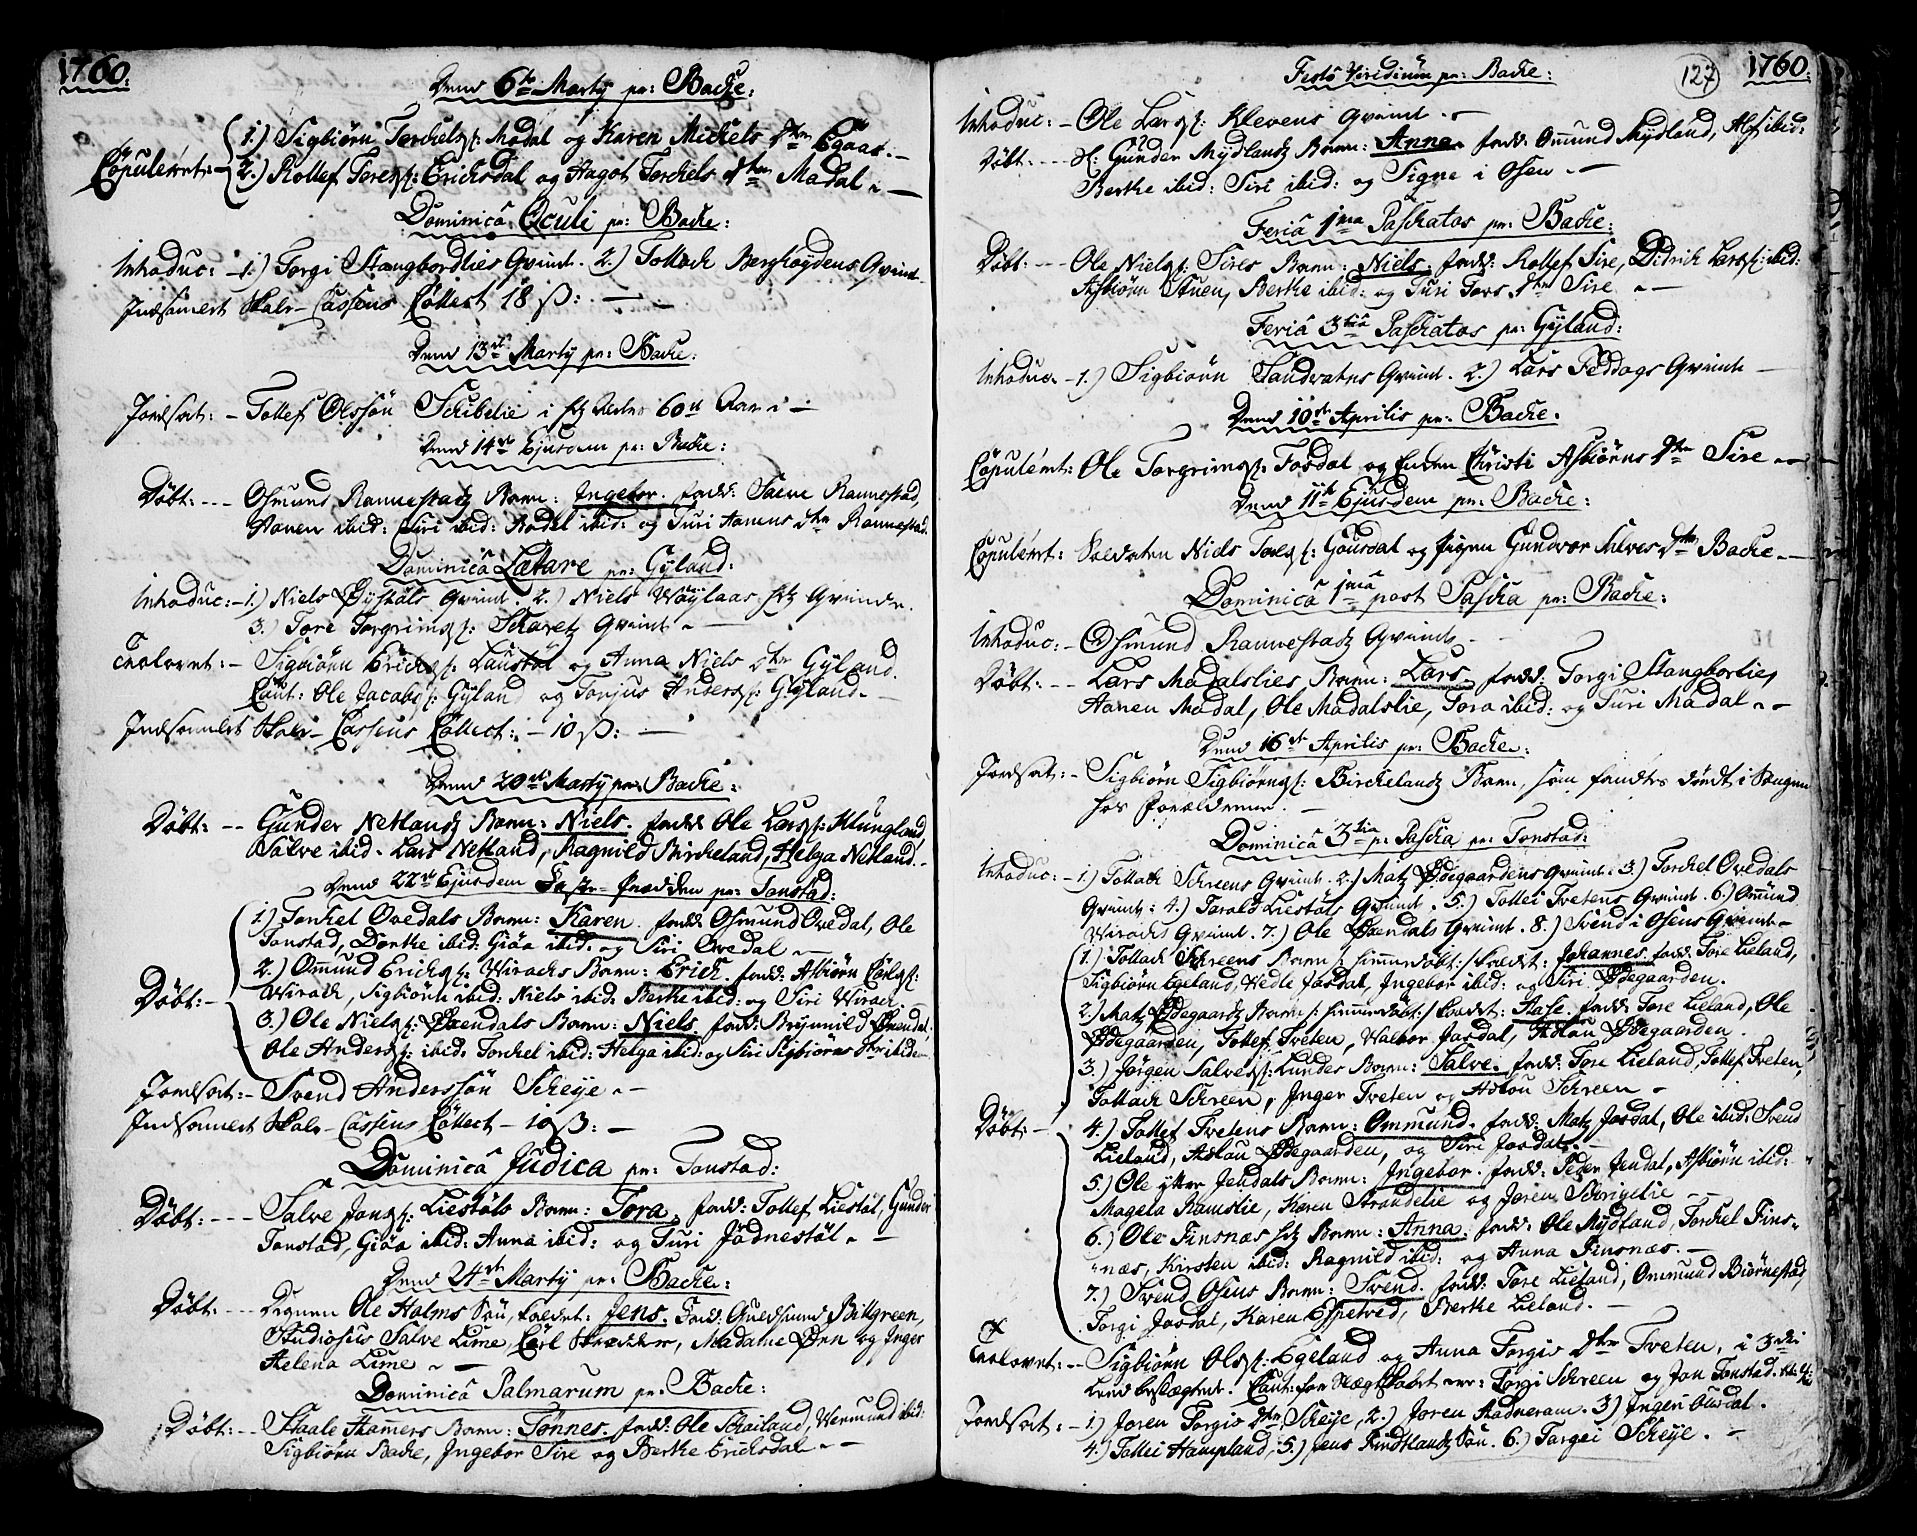 1760.
Dend 6te Martÿ pr: Backe:
1.) Sigbiörn Torchels: Madal og Karen Mickels Dtr Egaas.
Copuleret: 2.) Rollef Tores: Ericksdal og Aagot Torchels Dtr Madal
Dominica Oculi pr: Backe:
Introduc: - 1.) Torgi Stangbordlies Qvinde. 2.) Tollack Berghøydens Qvinde
Indsamlet Skole-Cassens Collect 18 ß:
Dend 13de Martÿ pr: Backe:
Jordsat: - Tollef Olssön Schibelie i sit Alders 60st Aar
Dend 14de Ejusdem pr: Backe:
Døbt: --- Osmund Rannestads Barn: Ingebor. fadd: Salve Rannestad,
Aanen ibid: Siri ibid: Aadel ibid: og Turi Aanens Dtr Rannestad.
Dominica Lætare pr: Gÿland:
Introduc: - 1.) Niels Øÿstøls Qvinde. 2.) Niels Waÿlaas Qvinde.
3.) Tore Torgrims: Skarets Qvinde
Trolovet: - Sigbiörn Ericks: Laustøl og Anna Niels Dtr Gÿland.
Caut: Ole Jacobs: Gÿland og Tonjus Anders: Gÿland.
Indsamlet Skole-Cassens Collect: - 10 ß:
Dend 20de Martÿ pr: Backe:
Døbt: -- Gunder Netlands Barn: Niels. fadd: Ole Lars: Klungland,
Salve ibid. Lars Netland, Ragnild Birckeland, Helga Netland.
Dend 22de Ejusdem Faste-Prædiken pr: Tonstad:
1.) Torchel Ovedals Barn: Karen. fadd: Osmund Ovedal, Ole
Tonstad, Dorthe ibid: Giøa ibid: og Siri Ovedal
2.) Ommund Ericks: Wiracks Barn: Erick. fadd: Asbiörn Carls:
Døbt: - Wirack, Sigbiörn ibid: Niels ibid: Berthe ibid: og Siri Wirack.
3.) Ole Niels: Øxendals Barn: Niels. fadd: Brÿnnild Øxendal
Ole Anders: ibid. Torchel ibid: Helga ibid: og Siri Sigbiörns Dtr ibidem
Jordsat: - Svend Anderssön Scheÿe
Indsamlet Skole-Cassens Collect - 10 ß:
Dominica Judica pr: Tonstad:
Døbt: --- Salve Jons: Liestøls Barn: Tora. fadd: Tollef Liestøl, Gunder
Tonstad, Giøa ibid: Anna ibid: og Turi Jødnestøl
Dend 24de Martÿ pr: Backe:
Døbt: --- Degnen Ole Holms Sön, kaldet: Jens. Fad: Guldsmed Billgreen,
Studiosus Salve Lime, Carl Skrædder, Madame Ørn og Inger
Helena Lime
Dominica Palmarum pr: Backe:
Døbt: -- Staale Stammers Barn: Tønnes. fadd: Ole Schailand, Wermund ibid:
Sigbiörn Backe, Ingebor Sire og Berthe Ericksdal
127
1760.
Festo Viridium pr: Backe:
Introduc: - Ole Lars: Klevens Qvinde
Døbt: --- Gunder Mÿdlands Barn: Anna. fadd: Ommund Mÿdland, Alf ibid:
Berthe ibid: Siri ibid: og Signe i Osen
Feria 1ma Paschatos pr: Backe:
Døbt: --- Ole Niels: Sires Barn: Niels. fadd: Rollef Sire, Didrich Lars: ibid:
Asbiörn Stuen, Berthe ibid: og Turi Tors Dtr Sire
Feria 3tia Paschatos pr: Gÿland:
Introduc. - 1.) Sigbiörn Sandvatns Qvinde. 2.) Lars Feddogs Qvinde
Dend 10de Aprilis pr: Backe:
Copuleret: Ole Torgrims: Fosdal og Enken Christi Asbiörns Dtr Sire
Dend 11te Ejusdem pr: Backe:
Copuleret: Soldaten Niels Tores: Gousdal og Pigen Gundvor Salves Dtr Backe
Dominica 1ma post Pascha pr: Backe:
Introduc: - Osmund Rannestads Qvinde
Døbt: -- Lars Madalslies Barn: Lars. fadd: Torgi Stangborlie,
Aanen Madal, Ole Madalslie, Tora ibid: og Turi Madal
Dend 16de Aprilis pr: Backe:
Jordsat: - Sigbiörn Sigbiörns: Birckelands Barn, som fandtes død i Sengen
hos Forældrene.
Dominica 3tia p: Pascha pr: Tonstad:
Introduc: - 1.) Tollack Schreens Qvinde. 2.) Matz Ødegaardens Qvinde. 3.) Torchel Ovedals
Qvinde. 4.) Tarald Liestøls Qvinde. 5.) Tollei Tvetens Qvinde. 6.) Ommund
Wiracks Qvinde. 7.) Ole Øxendals Qvinde. 8.) Svend i Osens Qvinde
1.) Tollack Schreens Barn /: hiemmedøbt :/ kaldet: Johannes. fadd: Tore Lieland,
Sigbiörn Egeland, Vedle Josdal, Ingebor ibid: og Siri Ødegaarden.
2.) Matz Ødegaards Barn /: hiemmedøbt :/ kaldet: Aase. fadd: Tore Lieland, Ole
Ødegaarden, Tollef Tveten, Walbor Josdal, Aslou Ødegaarden.
3.) Jörgen Salves: Lundes Barn: Salve. fadd: Tore Lieland, Tollef Tveten,
Tollack Schreen, Inger Tveten og Aslou Schreen
Døbt: - 4.) Tollef Tvetens Barn: Ommund. fadd: Matz Josdal, Ole ibid: Svend
Lieland, Aslou Ødegaarden, og Siri Josdal.
5.) Ole ÿtter Jendals Barn: Ingebor. fadd: Peder Jendal, Asbiörn ibid:
Magela Ramslie, Karen Strandelie og Joren Schrigelie
6.) Ole Finsnæs Barn: Anna. fadd: Ole Mÿdland, Torchel Fins-
næs, Kirsten ibid: Ragnild ibid: og Anna Finsnæs.
7.) Svend Osens Barn: Svend. fadd: Tore Lieland, Ommund Biörnestad,
Torgi Josdal, Karen Espetved, Berthe Lieland.
Trolovet: -- Sigbiörn Ols: Egeland og Anna Torgis Dtr Tveten, i 3die
Leed beslægtede. Caut: for Slægtskabet er: Torgi Schreen og Jon Tonstad.
Jordsat: - 1.) Joren Torgis Dtr Scheÿe, 2.) Joren Stadneram. 3.) Ingeri Ousdal.
4.) Tollei Hompland, 5.) Jens Sön. 6.) Torgei Scheÿe.